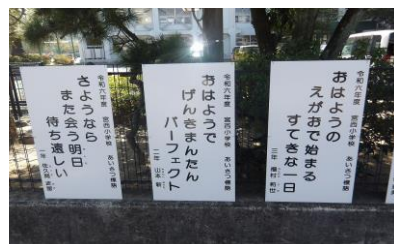 令和六年度 宮西小学校 あいさつ標語
おはようの
えがおで始まる
すてきな一日
三年
令和六年度 宮西小学校 あいさつ標語
おはようで
げんきまんたん
パーフェクト
二年 山本
令和六年度 宮西小学校 あいさつ標語
さようなら
また会う明日
待ち遠しい
一年